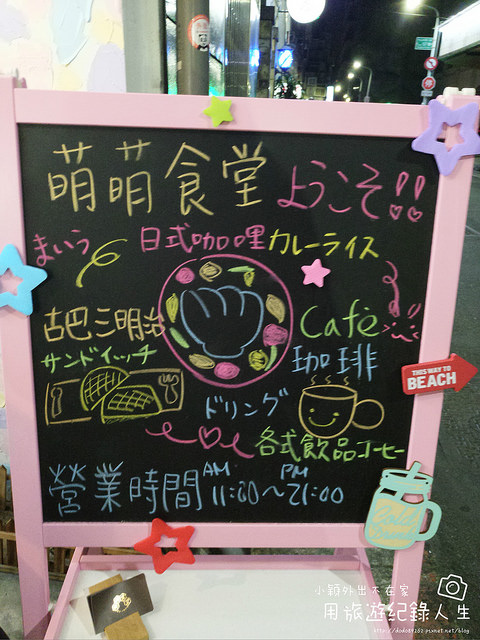 萌萌食堂 ようこそ!!
まいう 日式咖哩 カレーライス
古巴三明治 Cafè
サンドイッチ 珈琲
ドリング
各式飲品コーヒー
營業時間 AM 11:00~PM 21:00
THIS WAY TO
BEACH
Cold
小穎外出不在家
用旅遊紀錄人生